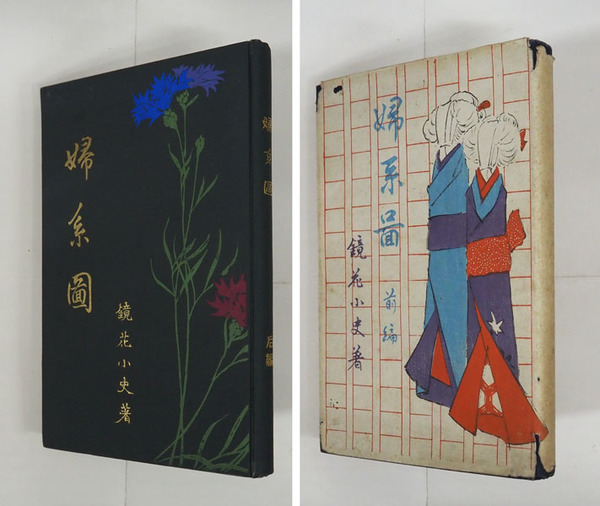 婦系圖
鏡花小史著
婦系圖
后編
婦系圖
前編
鏡花小史著